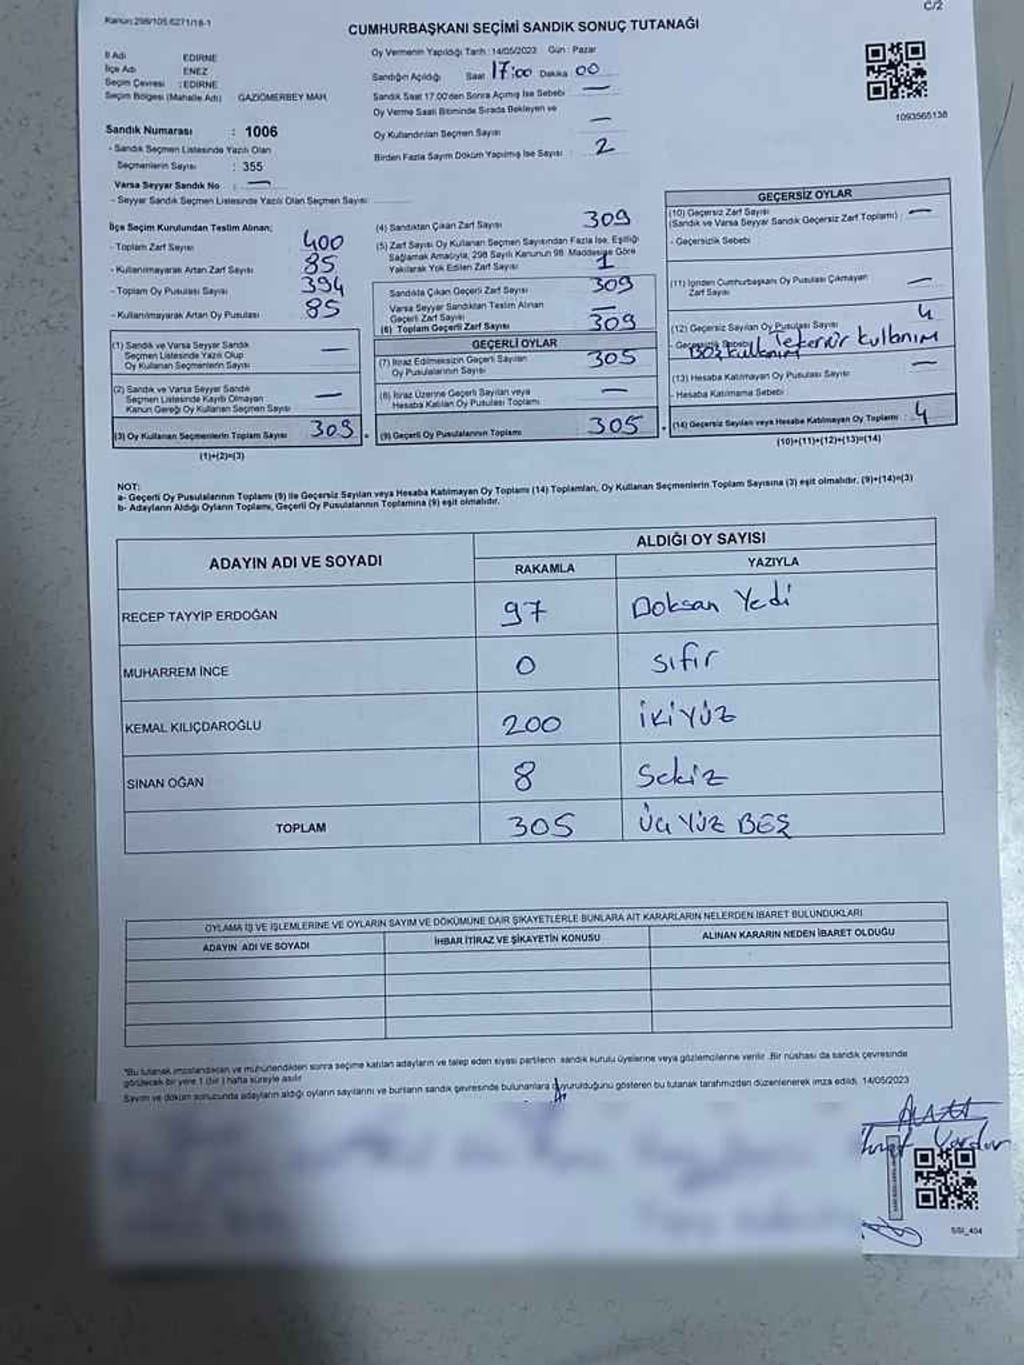 C/2
Kanun:298/105.6271/18-1
CUMHURBAŞKANI SEÇİMİ SANDIK SONUÇ TUTANAĞI
İl Adı EDİRNE
İlçe Adı ENEZ
Seçim Çevresi : EDİRNE
Seçim Bölgesi (Mahalle Adı) GAZİÖMERBEY MAH.
Sandık Numarası : 1006
- Sandık Seçmen Listesinde Yazılı Olan
Seçmenlerin Sayısı : 355
Varsa Seyyar Sandık No : —
- Seyyar Sandık Seçmen Listesinde Yazılı Olan Seçmen Sayısı
Oy Vermenin Yapıldığı Tarih : 14/05/2023 Gün : Pazar
Sandığın Açıldığı Saat 17:00 Dakika 00
Sandık Saat 17.00'den Sonra Açılmış İse Sebebi —
Oy Verme Saati Bitiminde Sırada Bekleyen ve
Oy Kullandırılan Seçmen Sayısı —
Birden Fazla Sayım Döküm Yapılmış İse Sayısı : 2
1093565138
İlçe Seçim Kurulundan Teslim Alınan;
- Toplam Zarf Sayısı 400
- Kullanılmayarak Artan Zarf Sayısı 85
- Toplam Oy Pusulası Sayısı 394
- Kullanılmayarak Artan Oy Pusulası 85
(1) Sandık ve Varsa Seyyar Sandık
Seçmen Listesinde Yazılı Olup
Oy Kullanan Seçmenlerin Sayısı —
(2) Sandık ve Varsa Seyyar Sandık
Seçmen Listesinde Kayıtlı Olmayan
Kanun Gereği Oy Kullanan Seçmen Sayısı —
(3) Oy Kullanan Seçmenlerin Toplam Sayısı 309
(1)+(2)=(3)
(4) Sandıktan Çıkan Zarf Sayısı 309
(5) Zarf Sayısı Oy Kullanan Seçmen Sayısından Fazla İse, Eşitliği
Sağlamak Amacıyla, 298 Sayılı Kanunun 98. Maddesine Göre
Yakılarak Yok Edilen Zarf Sayısı 1
Sandıkta Çıkan Geçerli Zarf Sayısı 309
Varsa Seyyar Sandıktan Teslim Alınan
Geçerli Zarf Sayısı —
(6) Toplam Geçerli Zarf Sayısı 309
GEÇERLİ OYLAR
(7) İtiraz Edilmeksizin Geçerli Sayılan
Oy Pusulalarının Sayısı 305
(8) İtiraz Üzerine Geçerli Sayılan veya
Hesaba Katılan Oy Pusulası Toplamı —
(9) Geçerli Oy Pusulalarının Toplamı 305
GEÇERSİZ OYLAR
(10) Geçersiz Zarf Sayısı
(Sandık ve Varsa Seyyar Sandık Geçersiz Zarf Toplamı) : —
- Geçersizlik Sebebi
(11) İçinden Cumhurbaşkanı Oy Pusulası Çıkmayan
Zarf Sayısı —
(12) Geçersiz Sayılan Oy Pusulası Sayısı 4
- Geçersizlik Sebebi Boş kullanım kullanım
(13) Hesaba Katılmayan Oy Pusulası Sayısı —
- Hesaba Katılmama Sebebi
(14) Geçersiz Sayılan veya Hesaba Katılmayan Oy Toplamı : 4
(10)+(11)+(12)+(13)=(14)
NOT:
a- Geçerli Oy Pusulalarının Toplamı (9) ile Geçersiz Sayılan veya Hesaba Katılmayan Oy Toplamı (14) Toplamları, Oy Kullanan Seçmenlerin Toplam Sayısına (3) eşit olmalıdır. (9)+(14)=(3)
b- Adayların Aldığı Oyların Toplamı, Geçerli Oy Pusulalarının Toplamına (9) eşit olmalıdır.
ADAYIN ADI VE SOYADI ALDIĞI OY SAYISI
RAKAMLA YAZIYLA
RECEP TAYYİP ERDOĞAN 97 Doksan Yedi
MUHARREM İNCE 0 sıfır
KEMAL KILIÇDAROĞLU 200 İKİYÜZ
SİNAN OĞAN 8 Sekiz
TOPLAM 305 ÜÇ YÜZ BEŞ
OYLAMA İŞ VE İŞLEMLERİNE VE OYLARIN SAYIM VE DÖKÜMÜNE DAİR ŞİKAYETLERLE BUNLARA AİT KARARLARIN NELERDEN İBARET BULUNDUKLARI
ADAYIN ADI VE SOYADI İHBAR İTİRAZ VE ŞİKAYETİN KONUSU ALINAN KARARIN NEDEN İBARET OLDUĞU
*Bu tutanak imzalandıktan ve mühürlendikten sonra seçime katılan adayların ve talep eden siyasi partilerin sandık kurulu üyelerine veya gözlemcilerine verilir. Bir nüshası da sandık çevresinde
görülecek bir yere 1 (bir) hafta süreyle asılır.
Sayım ve döküm sonucunda adayların aldığı oyların sayılarını ve bunların sandık çevresinde bulunanlara duyurulduğunu gösteren bu tutanak tarafımızdan düzenlenerek imza edildi. 14/05/2023
SSI_404